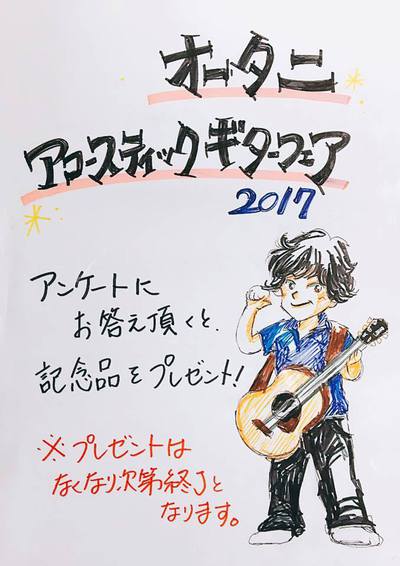 オータニ
アコースティックギターフェア
2017
アンケートに
お答え頂くと、
記念品をプレゼント!
※プレゼントは
なくなり次第終了と
なります。